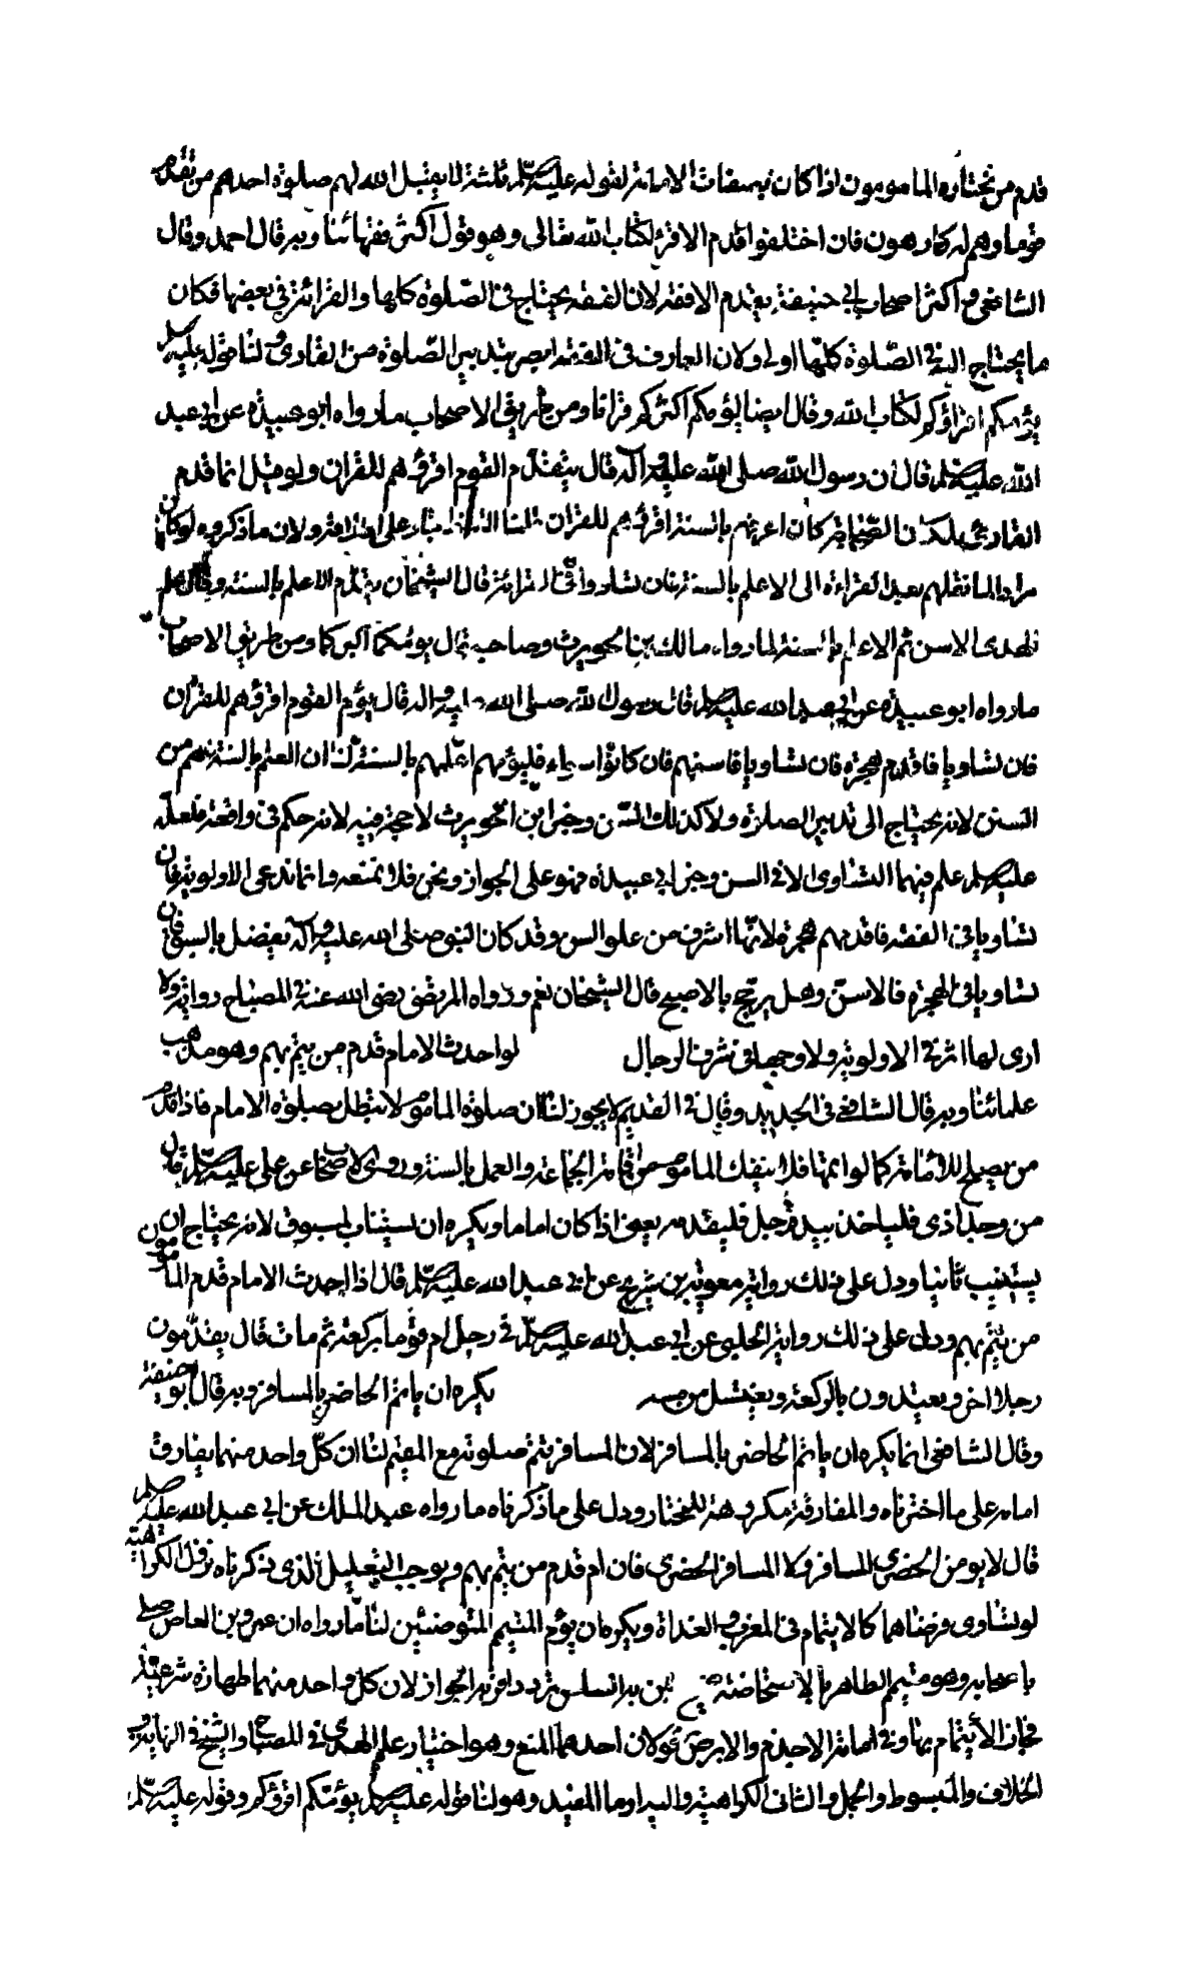 قدم من يختاره المامومون اذا كان بصفات الامامة لقوله عليه السلم ثلثة لا يقبل الله لهم صلوة احدهم من تقدم
قوما وهم له كارهون فان اختلفوا قدم الاقرء لكتاب الله تعالى وهو قول اكثر فقهائنا وبه قال احمد وقال
الشافعي و اكثر اصحاب ابي حنيفة يقدم الافقه لان الفقه يحتاج في الصلوة كلها والقرائة في بعضها فكان
ما يحتاج اليه في الصلوة كلها اولى ولان العارف في الفقه ابصر بتدبير الصلوة من القارى لنا قوله عليه السلم
يؤمكم اقراؤكم لكتاب الله وقال ايضا ليؤمكم اكثركم قرانا ومن طريق الاصحاب ما رواه ابو عبيدة عن ابي عبد
الله عليه السلم قال ان رسول الله صلى الله عليه واله قال يتقدم القوم اقرؤهم للقران ولو قيل انما قدم
القارى لان الصحابة كان اعرفهم بالسنة اقرؤهم للقران قلنا اللفظ بناء على اطلاقه ولان ما ذكروه لو كان
مرادا لما نقلهم بعد القراءة الى الاعلم بالسنة فان تساووا في القرائة قال الشيخان يقدم الاعلم بالسنة وقال علم
الهدى الاسن ثم الاعلم بالسنة لما رواه مالك بن الحويرث وصاحبه قال يؤمكما اكبركما ومن طريق الاصحاب
ما رواه ابو عبيدة عن ابي عبد الله عليه السلم قال قال رسول الله صلى الله عليه واله قال يؤم القوم اقرؤهم للقران
فان تساويا فاقدمهم هجرة فان تساويا فاسنهم فان كانوا سواء فليؤمهم اعلمهم بالسنة لنا ان العلم بالسنة اهم من
السن لانه يحتاج الى تدبير الصلوة ولا كذلك السن وخبر ابن الحويرث لا حجة فيه لانه حكم في واقعة فلعله
عليه السلم علم فيهما التساوى الا في السن وخبر ابي عبيدة فهو على الجواز ونحن فلا نمنعه وانما ندعى الاولوية فان
تساويا في الفقه فاقدمهم هجرة لانها اشرف من علو السن وقد كان النبي صلى الله عليه واله يفضل بالسبق فان
تساويا في الهجرة فالاسن وهل يرجح بالاصبح قال الشيخان نعم ورواه المرتضى رضى الله عنه في المصباح رواية ولا
ارى لهذا اثرا في الاولوية ولا وجها في شرف الرجال لو احدث الامام قدم من يتم بهم وهو مذهب
علمائنا وبه قال الشافعي في الجديد وقال في القديم لا يجوز لنا ان صلوة الماموم لا تبطل بصلوة الامام فاذا قدم
من يصلح للامامة كما لو اتمها فلا ينفك الماموم من اقامة الجماعة والعمل بالسنة وروى الاصحاب عن علي عليه السلم قال
من وجد اذى فلياخذ بيد رجل فليقدمه يعني اذا كان اماما ويكره ان يستناب المسبوق لانه يحتاج ان
يستنيب ثانيا ودل على ذلك رواية معوية بن شريح عن ابي عبد الله عليه السلم قال اذا احدث الامام قدم المامومون
من يتم بهم ودل على ذلك رواية الحلبي عن ابي عبد الله عليه السلم في رجل ام قوما بركعة ثم مات قال يقدمون
رجلا اخر ويعتدون بالركعة ويغتسل من مسه يكره ان ياتم الحاضر بالمسافر وبه قال ابو حنيفة
وقال الشافعي انما يكره ان ياتم الحاضر بالمسافر لان المسافر يتم صلوته مع المقيم لنا ان كل واحد منهما يفارق
امامه على ما اخترناه والمفارقة مكروهة للمختار ودل على ما ذكرناه ما رواه عبد الملك عن ابي عبد الله عليه السلم
قال لا يؤم الحضري المسافر ولا المسافر الحضري فان ام قدم من يتم بهم ويوجب التعليل الذى ذكرناه زوال الكراهية
لو تساوى فرضاهما كالايتمام في المغرب والغداة ويكره ان يؤم المتيمم المتوضئين لنا ما رواه ان عمرو بن العاص صلى
باصحابه وهو متيمم الطاهر بالاستحاضة من بدن به السلس تردد اقربه الجواز لان كل واحد منهما طهارة شرعية
فجاز الايتمام بها وفي امامة الاجذم والابرص قولان احدهما المنع وهو اختيار علم الهدى في المصباح والشيخ في النهاية و
الخلاف والمبسوط والجمل والثاني الكراهية واليه اوما المفيد وهو لنا قوله عليه السلم يؤمكم اقرؤكم وقوله عليه السلم